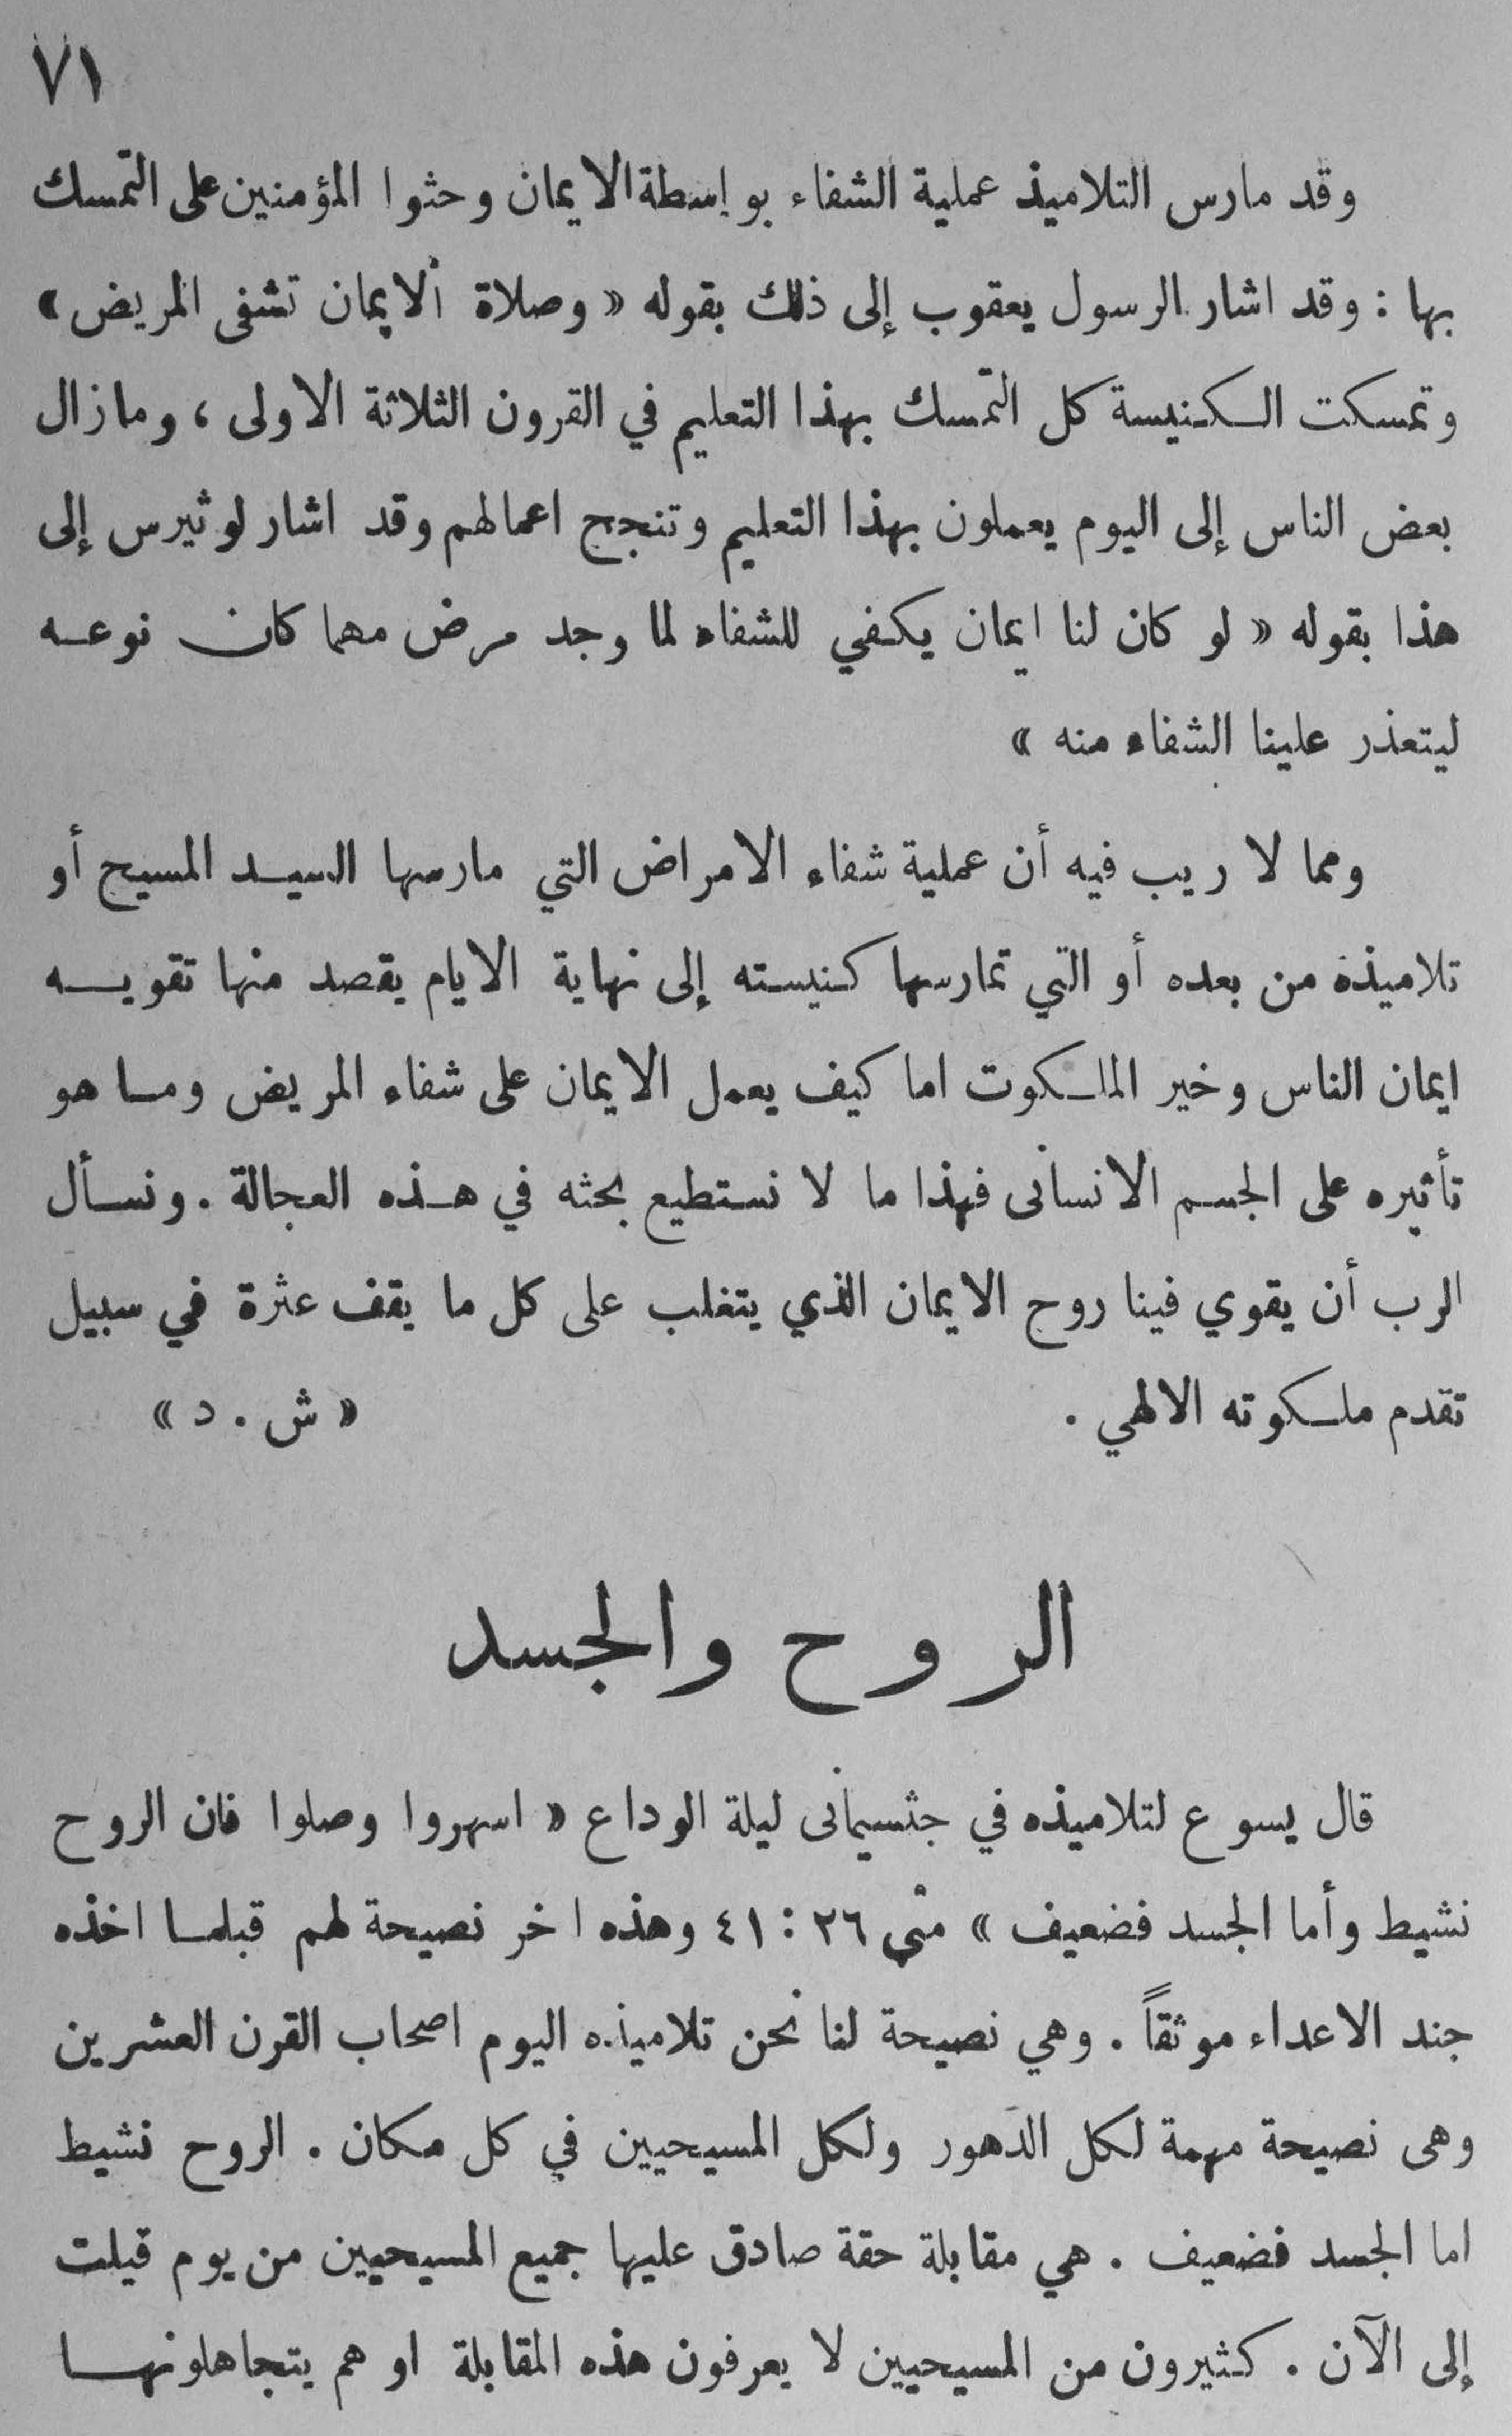 ٧١
وقد مارس التلاميذ عملية الشفاء بواسطة الايمان وحثوا المؤمنين على التمسك
بها : وقد اشار الرسول يعقوب إلى ذلك بقوله « وصلاة الايمان تشفى المريض »
وتمسكت الكنيسة كل التمسك بهذا التعليم في القرون الثلاثة الاولى ، وما زال
بعض الناس إلى اليوم يعملون بهذا التعليم وتنجح اعمالهم وقد اشار لوثيرس إلى
هذا بقوله « لو كان لنا ايمان يكفي للشفاء لما وجد مرض مهما كان نوعه
ليتعذر علينا الشفاء منه »
ومما لا ريب فيه أن عملية شفاء الامراض التي مارسها السيد المسيح أو
تلاميذه من بعده أو التي تمارسها كنيسته إلى نهاية الايام يقصد منها تقويه
ايمان الناس وخير الملكوت اما كيف يعمل الايمان على شفاء المريض وما هو
تأثيره على الجسم الانسانى فهذا ما لا نستطيع بحثه في هذه العجالة . ونسأل
الرب أن يقوي فينا روح الايمان الذي يتغلب على كل ما يقف عثرة في سبيل
تقدم ملكوته الالهي . « ش . د »
الروح والجسد
قال يسوع لتلاميذه في جثسيمانى ليلة الوداع « اسهروا وصلوا فان الروح
نشيط وأما الجسد فضعيف » متى ٢٦ : ٤١ وهذه اخر نصيحة لهم قبلما اخذه
جند الاعداء موثقاً . وهي نصيحة لنا نحن تلاميذه اليوم اصحاب القرن العشرين
وهى نصيحة مهمة لكل الدهور ولكل المسيحيين في كل مكان . الروح نشيط
اما الجسد فضعيف . هي مقابلة حقة صادق عليها جميع المسيحيين من يوم قيلت
إلى الآن . كثيرون من المسيحيين لا يعرفون هذه المقابلة او هم يتجاهلونها